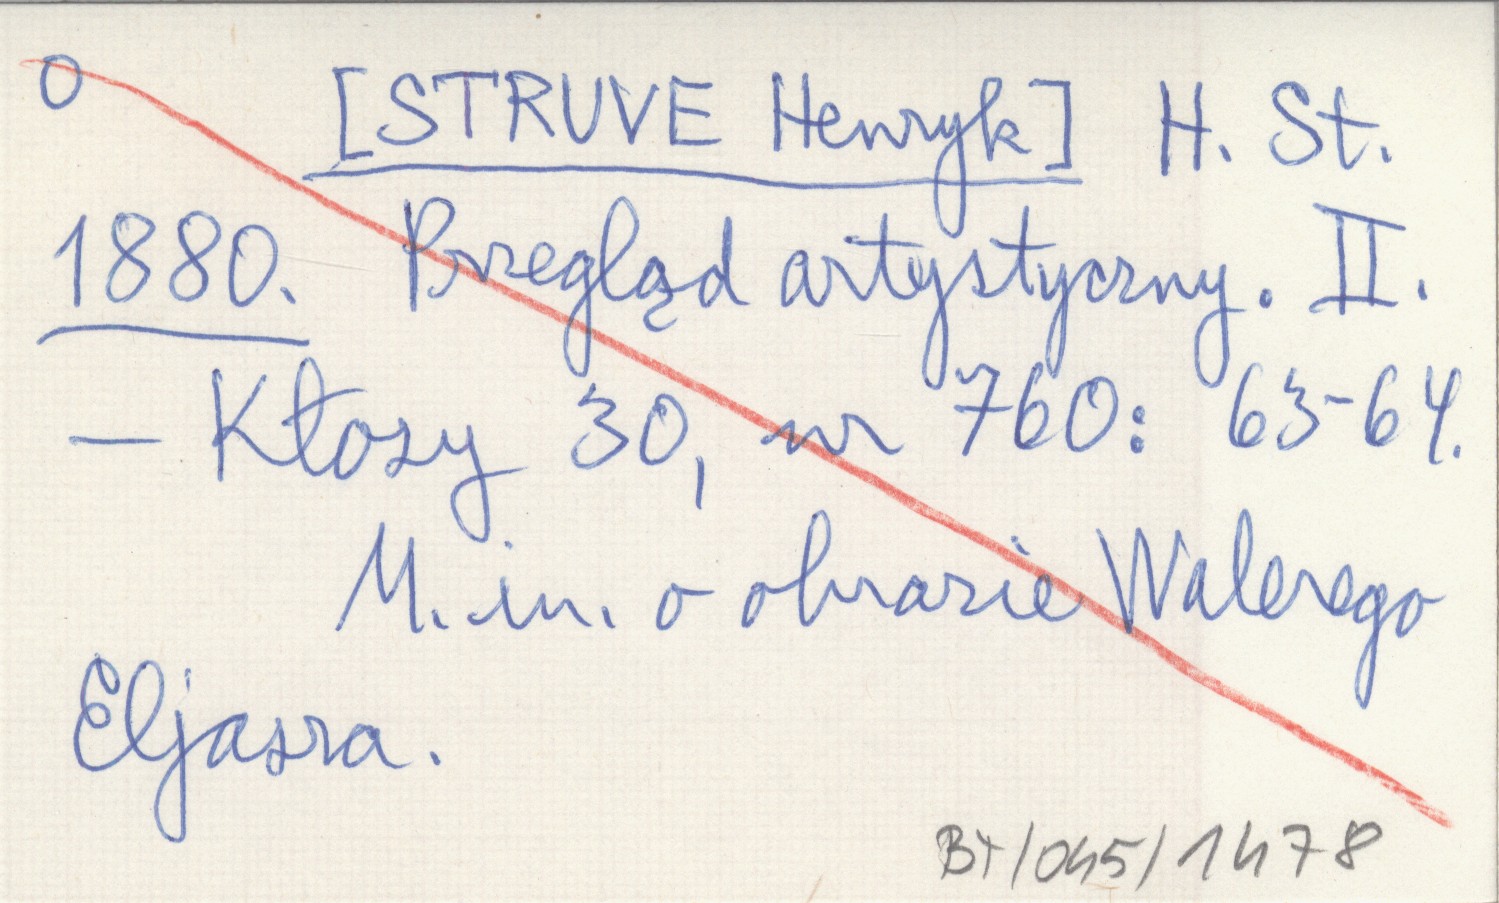 O [STRUVE Henryk] H. St.
1880. Przegląd artystyczny. II.
— Kłosy 30, nr 760: 63-64.
M. in. o obrazie Walerego
Eljasza.
BT/045/1478